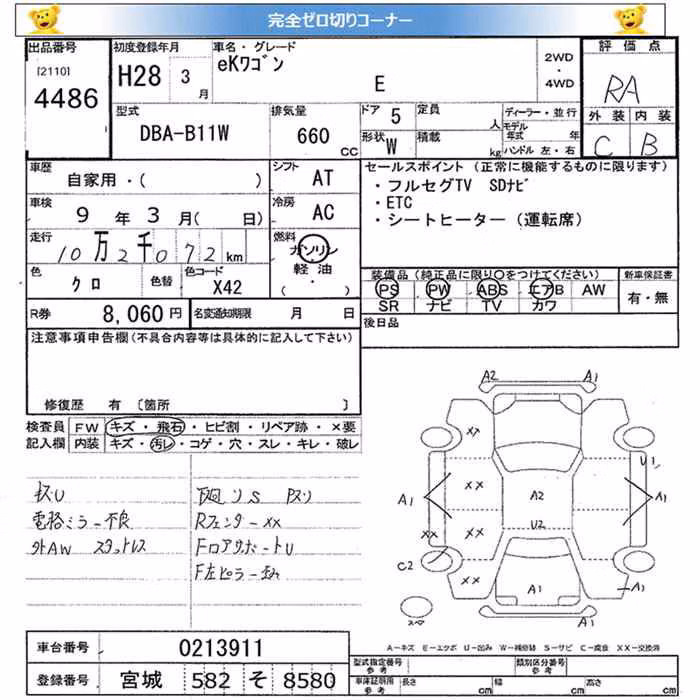 完全ゼロ切りコーナー
出品番号
[2110]
4486
初度登録年月
H28 3 月
車名・グレード
eKワゴン
E
2WD
・
4WD
評価点
RA
外装 内装
C B
型式
DBA-B11W
排気量
660 CC
ドア 5
定員 人
形状 W
積載 kg
ディーラー・並行
モデル年式 年
ハンドル 左・右
車歴
自家用・( )
シフト AT
車検
9 年 3 月( 日)
冷房 AC
走行
10万2千072 km
燃料
ガソリン
軽油
( ・ )
色 クロ
色替
色コード X42
セールスポイント (正常に機能するものに限ります)
・フルセグTV SDナビ
・ETC
・シートヒーター(運転席)
装備品(純正品に限り○をつけてください)
PS PW ABS エアB AW
SR ナビ TV カワ
新車保証書
有・無
R券 8,060 円
名変通知期限 月 日
後日品
注意事項申告欄(不具合内容等は具体的に記入して下さい)
修復歴 有 [箇所 ]
検査員記入欄
FW キズ・飛石・ヒビ割・リペア跡・×要
内装 キズ・汚レ・コゲ・穴・スレ・キレ・破レ
電格ミラー不良
外AW スタットレス
Rフェンダー××
FロアサポートU
F左ピラー歪み
A2 A1
××
U1
A1 ×× A2 A1
U2
×× ××
C2
×× A1 A1
スペア
A1
A-キズ E-エクボ U-凹み W-補修跡 S-サビ C-腐食 XX-交換済
車台番号 0213911
登録番号 宮城 582 そ 8580
型式指定番号 参考
類別区分番号 参考
車庫証明用 参考
長さ cm 幅 cm 高さ cm